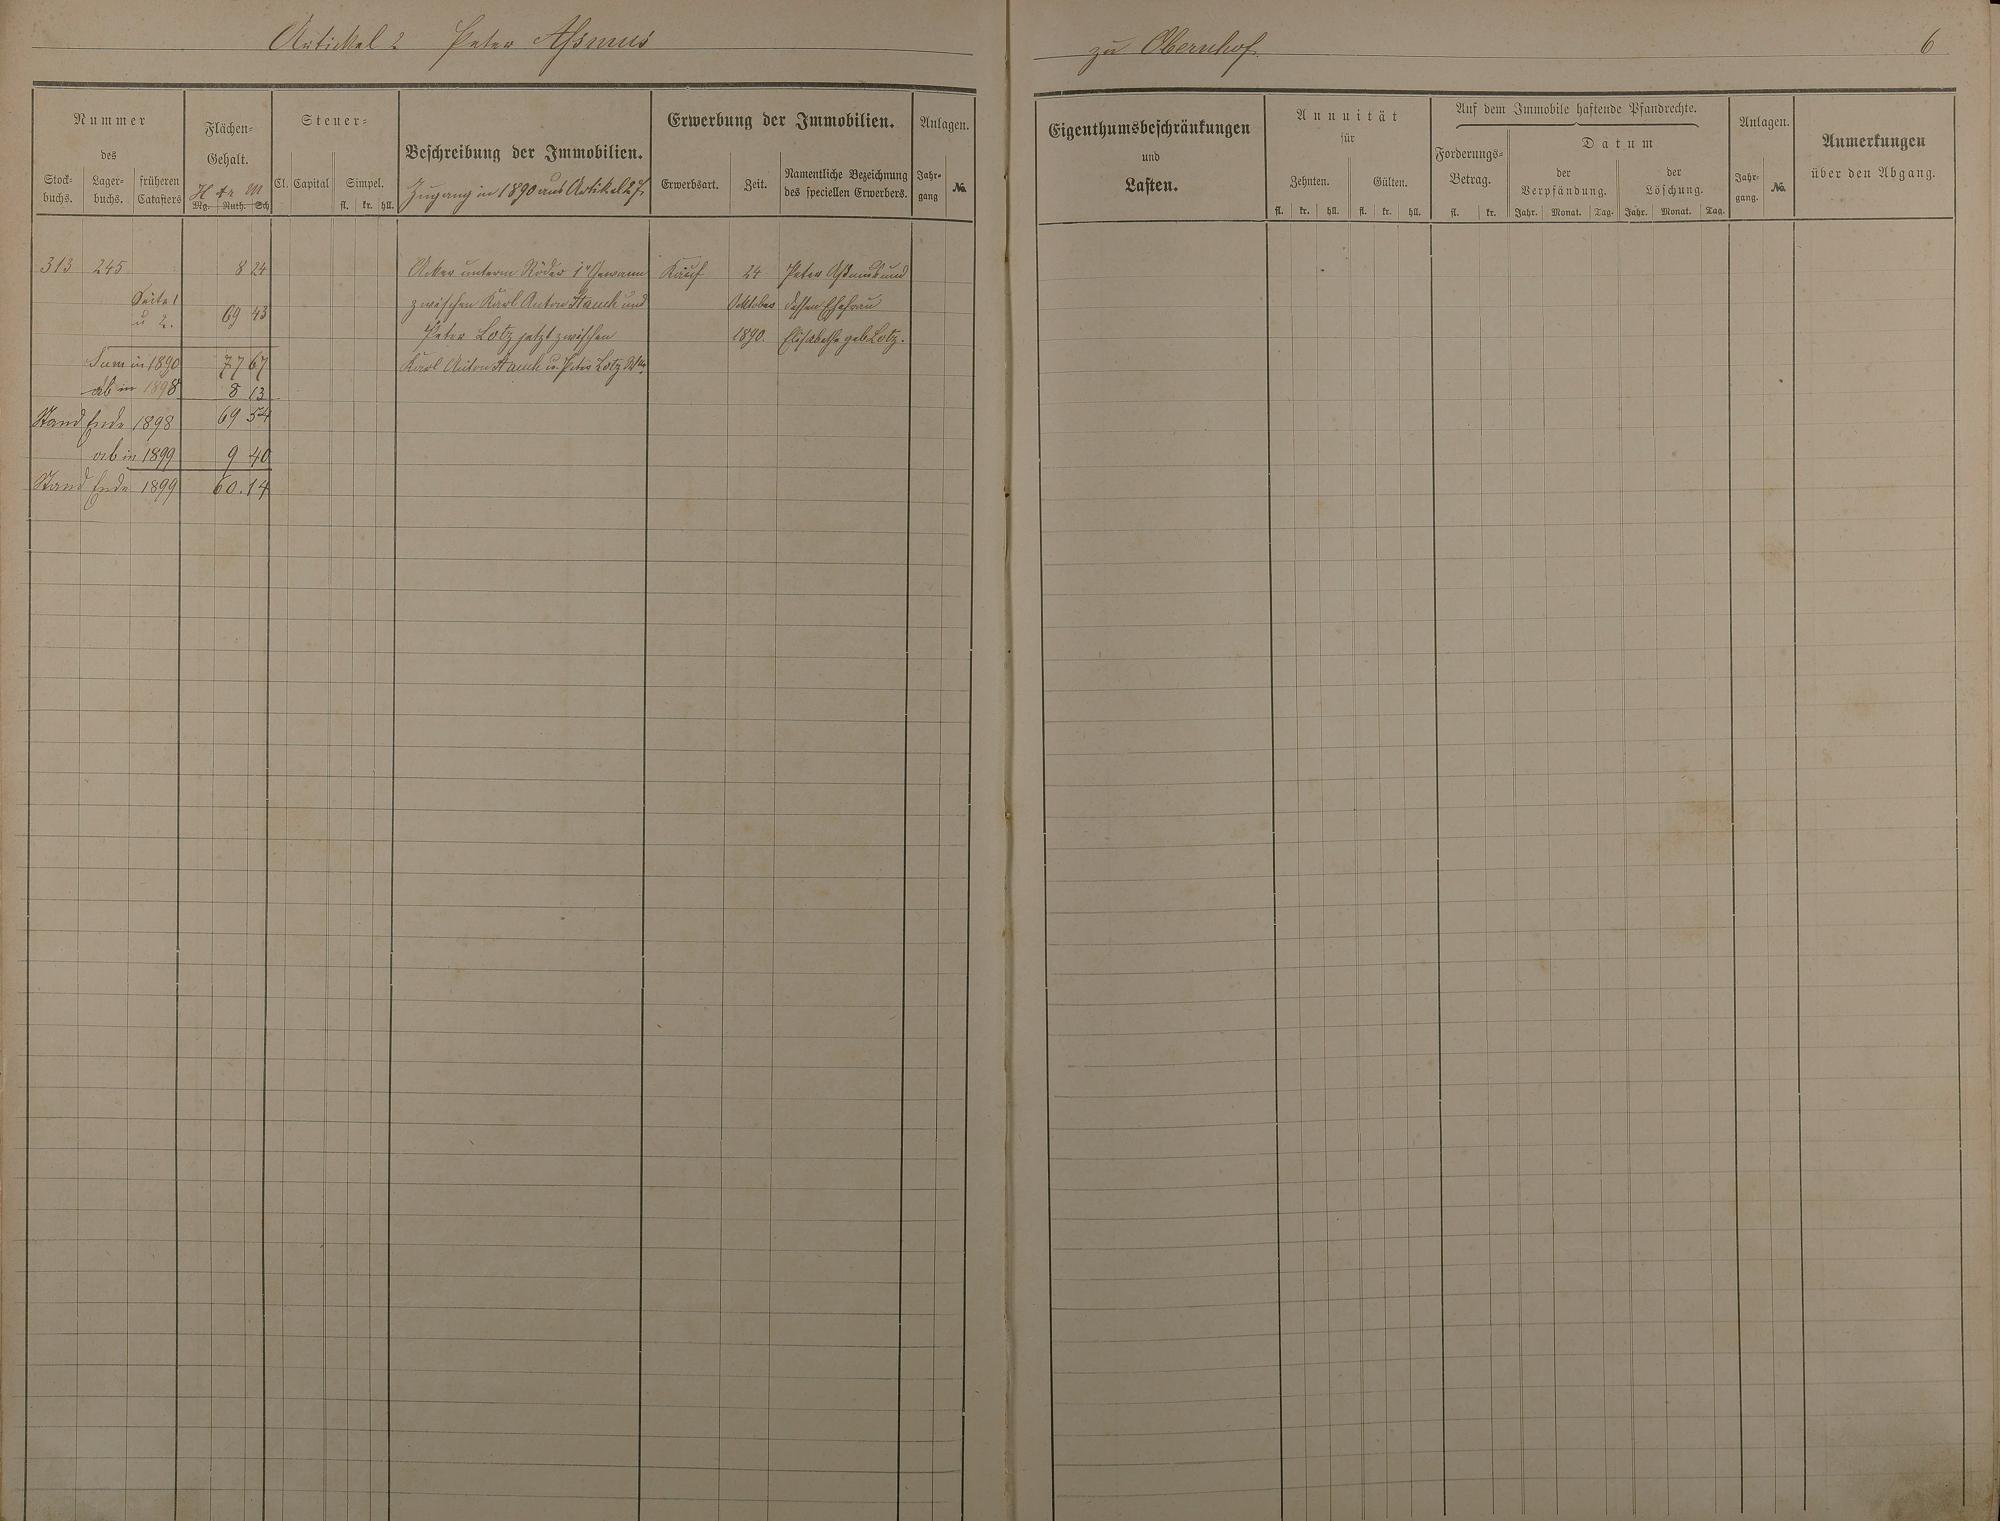 Artikel 2 Peter Aßmus
zu Obernhof
6
Nummer
des
Stock-
buchs.
Lager-
buchs.
früheren
Catasters
Flächen-
Gehalt.
H Ar M
Mg. Ruth. Sch
Steuer-
Cl. Capital Simpel.
fl. kr. hll.
Beschreibung der Immobilien.
Zugang in 1890 aus Artikel
Erwerbung der Immobilien.
Erwerbsart. Zeit.
Namentliche Bezeichnung
des speciellen Erwerbers.
Anlagen.
Jahr-
gang
No.
313 245 8 24 Acker unterm Röder 1r Gewann Kauf 24 Peter Aßmus und
Seite 1
u 2. 69 43 zwischen Karl Anton Stauch und Oktober dessen Ehefrau
Peter Lotz jetzt zwischen 1890. Elisabethe geb Lotz.
Sum in 1890 77 67 Karl Anton Stauch u. Peter Lotz Wwe
ab in 1898 8 13
Stand Ende 1898 69 54
ab in 1899 9 40
Stand Ende 1899 60.14
Eigenthumsbeschränkungen
und
Lasten.
Annuität
für
Zehnten. Gülten.
fl. kr. hll. fl. kr. hll.
Auf dem Immobile haftende Pfandrechte.
Forderungs-
Betrag.
fl. kr.
Datum
der
Verpfändung.
Jahr. Monat. Tag.
der
Löschung.
Jahr. Monat. Tag.
Anlagen.
Jahr-
gang.
No.
Anmerkungen
über den Abgang.